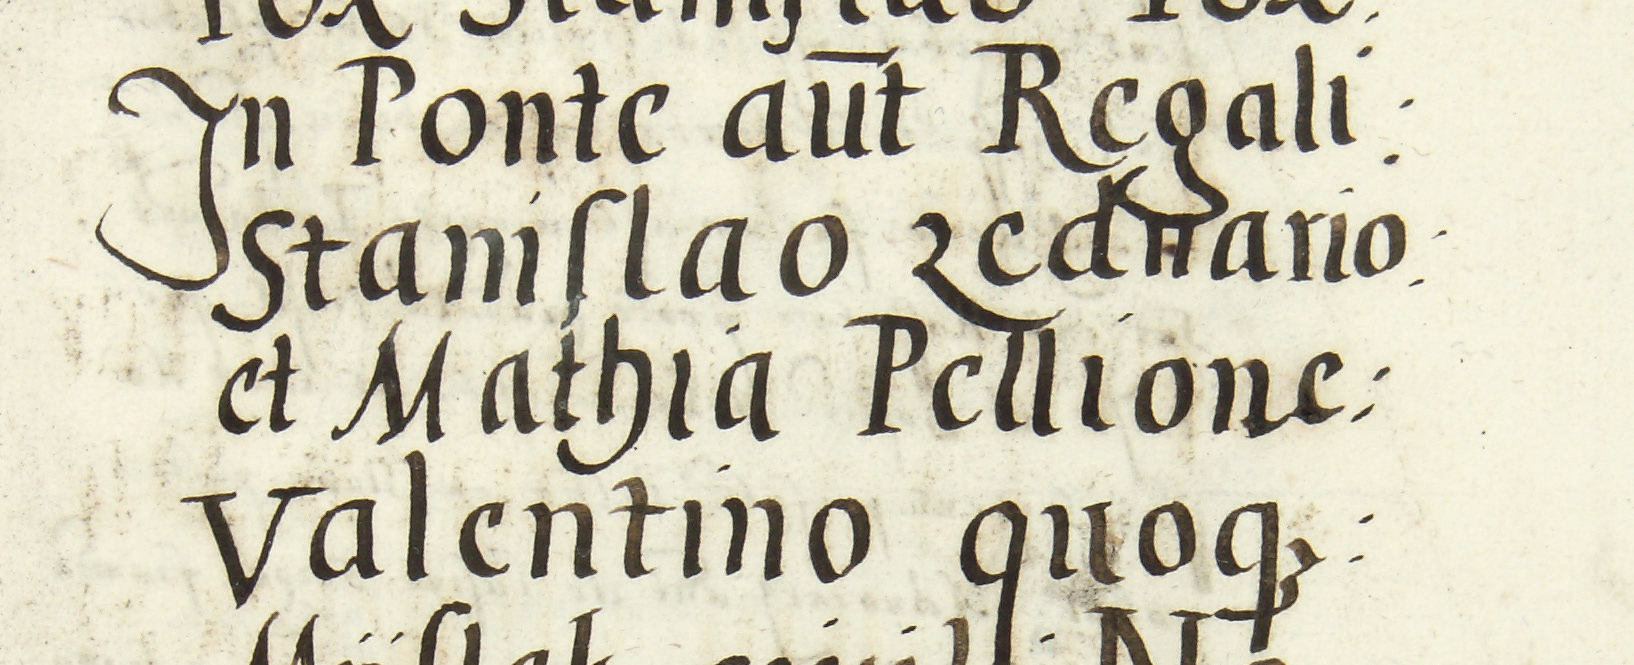 In Ponte aūt Regali:
Staniſlao ꝛednario:
et Mathia Pellione:
Valentino quoqꝫ: